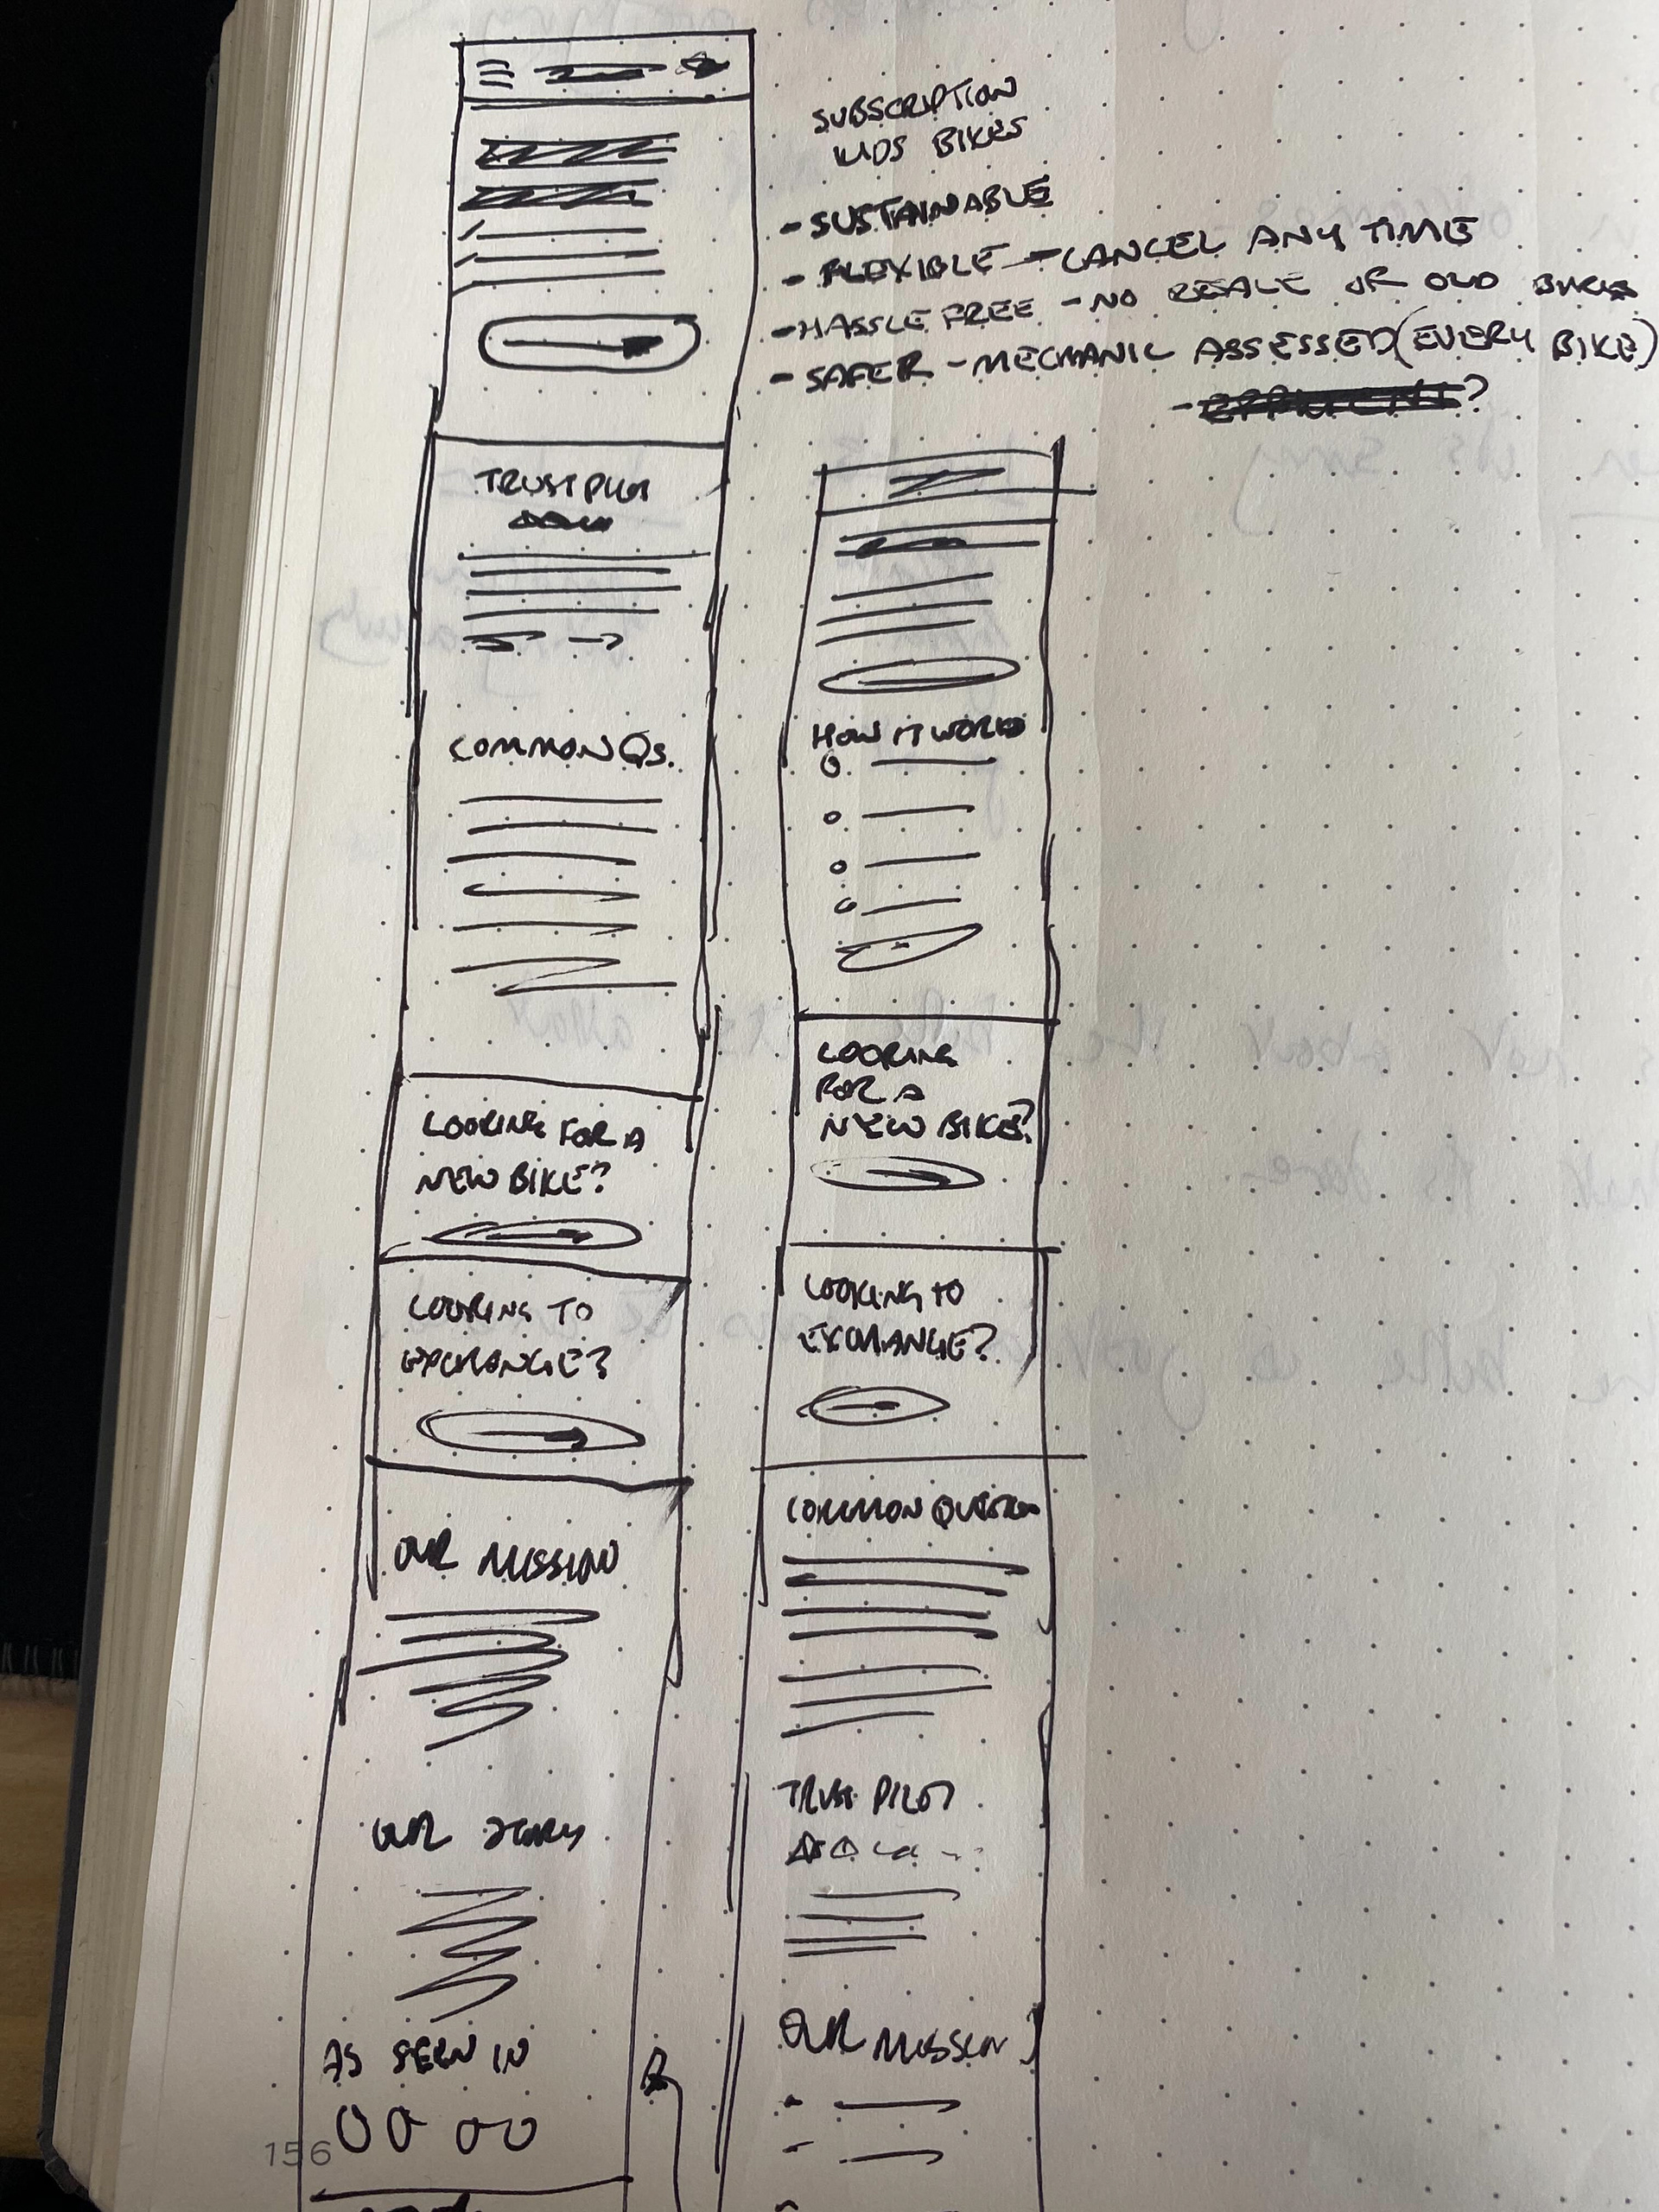 SUBSCRIPTION
KIDS BIKES
- SUSTAINABLE
- FLEXIBLE - CANCEL ANY TIME
- HASSLE FREE - NO RESALE OF OLD BIKES
- SAFER - MECHANIC ASSESSED (EVERY BIKE)
- ?
TRUSTPILOT
COMMON QS.
LOOKING FOR A
NEW BIKE?
LOOKING TO
EXCHANGE?
OUR MISSION
OUR STORY
AS SEEN IN
156
HOW IT WORKS
LOOKING
FOR A
NEW BIKE?
LOOKING TO
EXCHANGE?
COMMON QUESTIONS
TRUST PILOT
OUR MISSION